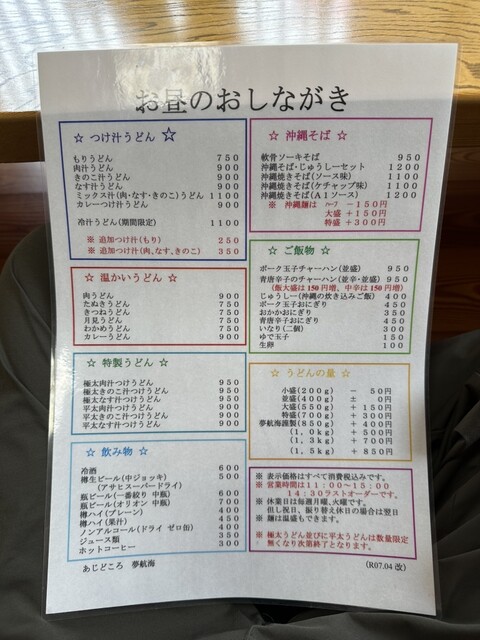 お昼のおしながき
☆ つけ汁うどん ☆
もりうどん 750
肉汁うどん 900
きのこ汁うどん 900
なす汁うどん 900
ミックス汁(肉・なす・きのこ)うどん 1100
カレーつけ汁うどん 900
冷汁うどん(期間限定) 1100
※ 追加つけ汁(もり) 250
※ 追加つけ汁(肉、なす、きのこ) 350
☆ 温かいうどん ☆
肉うどん 900
たぬきうどん 750
きつねうどん 750
月見うどん 750
わかめうどん 750
カレーうどん 900
☆ 特製うどん ☆
極太肉汁つけうどん 950
極太きのこ汁つけうどん 950
極太なす汁つけうどん 950
平太肉汁つけうどん 900
平太きのこ汁つけうどん 900
平太なす汁つけうどん 900
☆ 飲み物 ☆
冷酒 600
樽生ビール(中ジョッキ) 500
(アサヒスーパードライ)
瓶ビール(一番絞り 中瓶) 600
瓶ビール(オリオン 中瓶) 700
樽ハイ(プレーン) 400
樽ハイ(果汁) 450
ノンアルコール(ドライ ゼロ缶) 400
ジュース類 350
ホットコーヒー 300
あじどころ 夢航海
☆ 沖縄そば ☆
軟骨ソーキそば 950
沖縄そば・じゅうしーセット 1200
沖縄焼きそば(ソース味) 1100
沖縄焼きそば(ケチャップ味) 1100
沖縄焼きそば(A1ソース) 1200
※ 沖縄麺は ハーフ −150円
大盛 +150円
特盛 +300円
☆ ご飯物 ☆
ポーク玉子チャーハン(並盛) 950
青唐辛子のチャーハン(並辛・並盛) 950
(飯大盛は150円増、中辛は100円増)
じゅうしー(沖縄の炊き込みご飯) 400
ポーク玉子おにぎり 450
おかかおにぎり 350
青唐辛子おにぎり 450
いなり(二個) 300
ゆで玉子 150
生卵 100
☆ うどんの量 ☆
小盛(200g) − 50円
並盛(400g) ± 0円
大盛(550g) +150円
特盛(700g) +300円
夢航海謹製(850g) +400円
(1,0kg) +500円
(1,3kg) +700円
(1,5kg) +850円
※ 表示価格はすべて消費税込みです。
※ 営業時間は11:00〜15:00
14:30ラストオーダーです。
※ 休業日は毎週月曜、火曜です。
但し祝日、振り替え休日の場合は翌日
※ 麺は温盛もできます。
※ 極太うどん並びに平太うどんは数量限定
無くなり次第終了となります。
(R07.04 改)